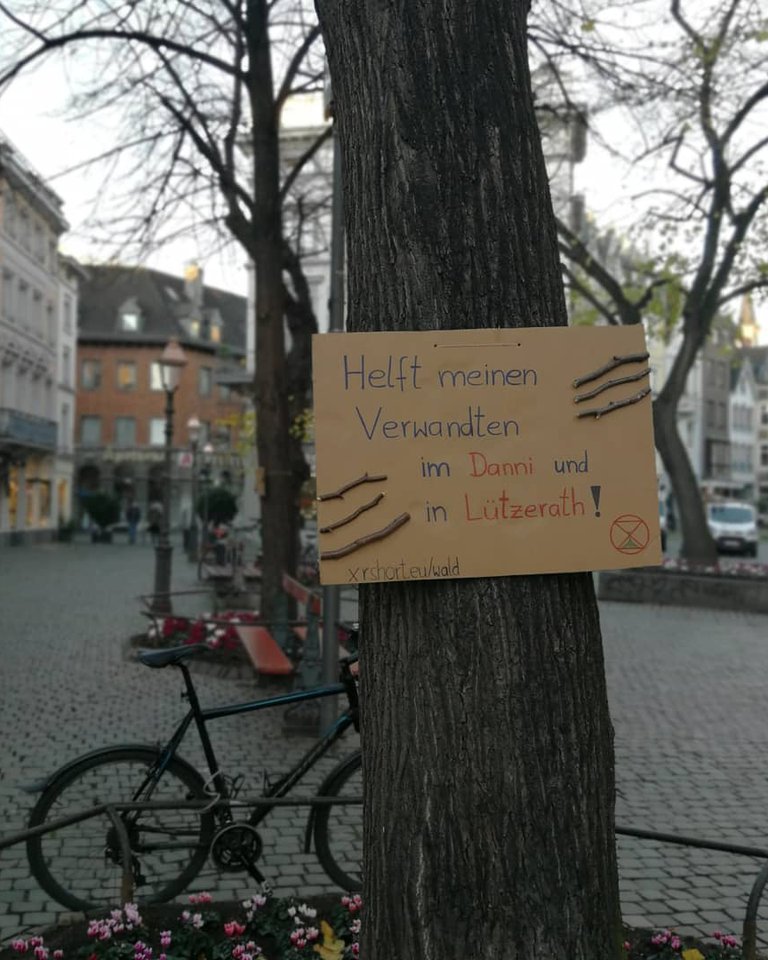 Helft meinen
Verwandten
im Danni und
in Lützerath!
xrshort.eu/wald